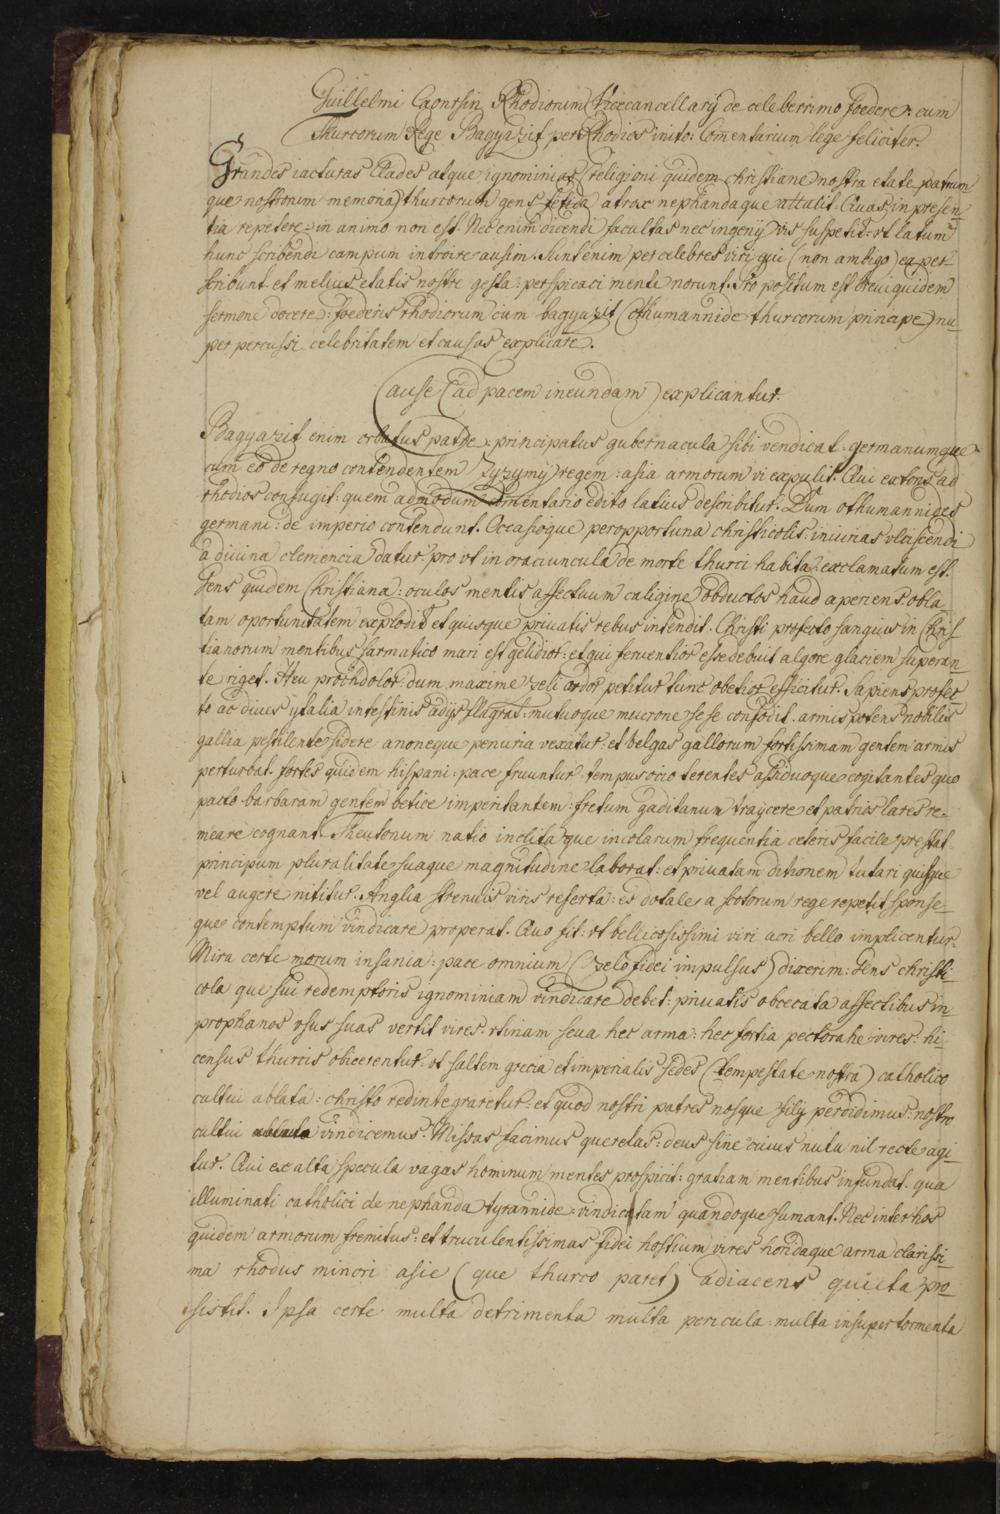 Guillelmi Caonrsin Rhodiorum Vicecancellarij de celeberrimo foedere: cum
Thurcorum Rege Bagyazit per Rhodios inito: Comentarium lege feliciter.
Grandes iacturas clades atque ignominias religioni quidem christiane nostra etate patrum
que nostrorum memoria thurcorum gens fetida atrox nephandaque attulit. Quas in presen-
tia repetere: in animo non est. Nec enim dicendi facultas nec ingenij vis suspetit: vt latum
hunc scribendi campum introire ausim. Sunt enim percelebres viri qui (non ambigo) ea per
scribunt et melius etatis nostre gesta: perspicaci mente norunt. Pro positum est breui quidem
sermone docere: foederis rhodiorum cum bagyazit (othumannide thurcorum principe) nu-
per percussi celebritatem et causas explicare.
Cause (ad pacem ineundam) explicantur.
Bagyazit enim orbatus patre: principatus gubernacula sibi vendicat. germanumque
cum eo de regno contendentem Zyzymÿ regem: asia armorum vi expulit. Qui extoris ad
rhodios confugit: quem admodum comentario edito latius describitur. Dum othumannides
germani: de imperio contendunt. Occasioque peropportuna christicolis: iniurias vlciscendi
a diuina clemencia datur: pro vt in oraciuncula de morte thurci habita: exclamatum est.
Gens quidem Christiana: oculos mentis affectuum caligine obductos haud aperiens obla-
tam oportunitatem explodit et quisque priuatis rebus intendit. Christi profecto sanguis in Chris-
tianorum mentibus sarmatico mari est gelidior: et qui feruentior esse debuit algore glaciem superan-
te riget. Heu prohdolor: dum maxime zeli ardor petitur tunc obetior efficitur. Sapiens profec-
to ac diues ytalia intestinis adijs flagrat. mutuoque mucrone sese confodit. armis potens nobilis
gallia pestilente sidere anoneque penuria vexatur: et belgas gallorum fortissimam gentem armis
perturbat. fortes quidem hispani: pace fruuntur tempus ocio terentes assiduoque cogitantes quo
pacto barbaram gentem betice imperitantem: fretum gaditanum traijcere et patrios lares re-
meare cognant. Theutonum natio inclita que incolarum frequentia ceteris facile prestat
principum pluralitate suaque magnitudine laborat: et priuatam ditionem tutari quisque
vel augere nititur. Anglia strenuis viris referta: eo dotales a scotorum rege repetit sponse-
que contemptum vindicare properat. Quo fit: vt bellicosissimi viri acri bello implicentur.
Mira certe morum insania: pace omnium (zelo fidei impulsus) dixerim: Gens christi-
cola que sui redemptoris ignominiam vindicare debet: priuatis obcecata affectibus in
prophanos vsus suas vertit vires. vtinam seua hec arma: hec fortia pectora he vires: hi-
census thurcis obicerentur: vt saltem grecia et imperialis sedes (tempestate nostra) catholico
cultui ablata: christo redintegraretur: et quod nostri patres nosque filij perdidimus: nostro
cultui ablata vindicemus. Missas facimus querelas: deus sine cuius nutu nil recte agi-
tur. Qui ex alta specula vagas hominum mentes prospicit: gratiam mentibus infundat. qua
illuminati catholici de nephanda tyrannide: vindictam quandoque sumant. Nec inter hos
quidem armorum fremitus: et truculentissimas fidei hostium vires horidaque arma clarissi-
ma rhodus minori asie (que thurco paret) adiacens quieta pro-
sistit. Ipsa certe multa detrimenta multa pericula multa insuper tormenta